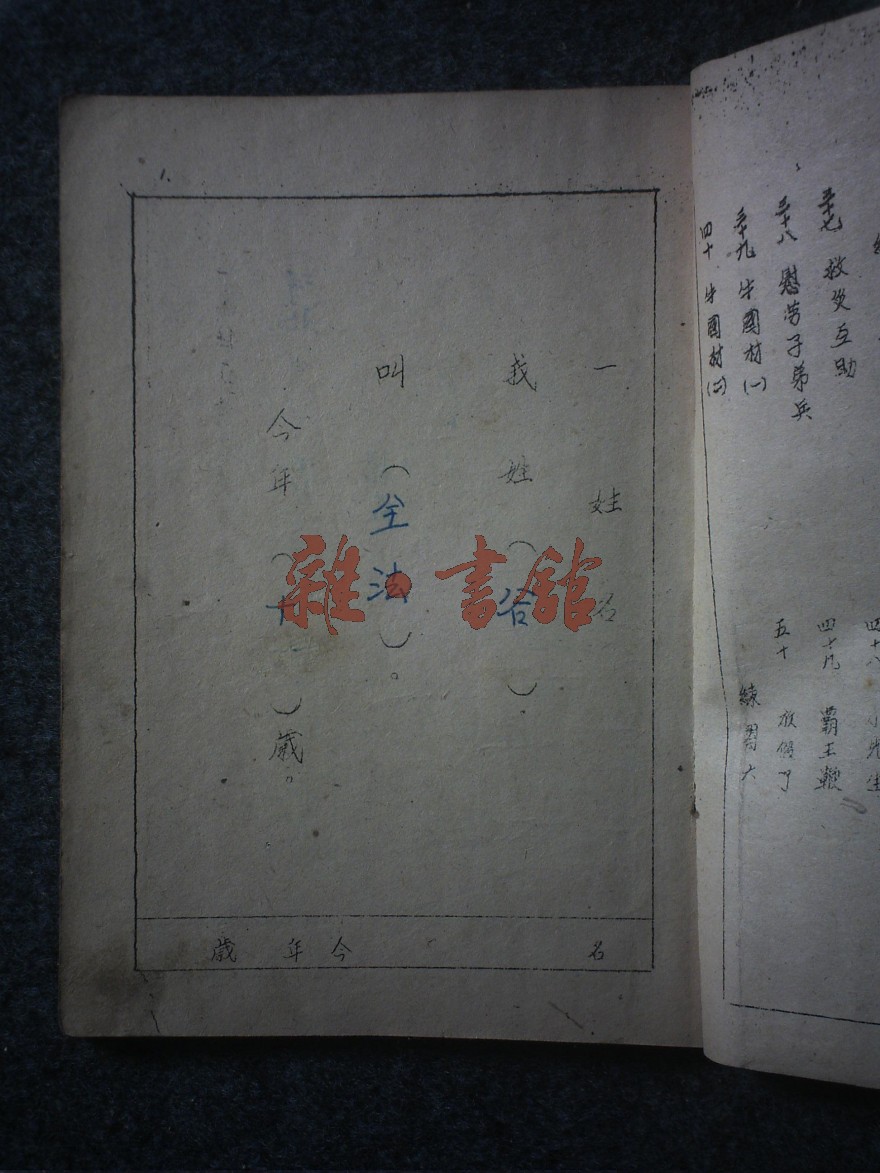 三十七 救災互助
三十八 慰劳子弟兵
三十九 國材(一)
四十 國材(二)
四十八 小先生
四十九 霸王鞭
五十 放假了
練習六
一 姓名
我姓(谷).
叫(全法)。
今年(十)歲。
名 今年 歲
雜·書舘